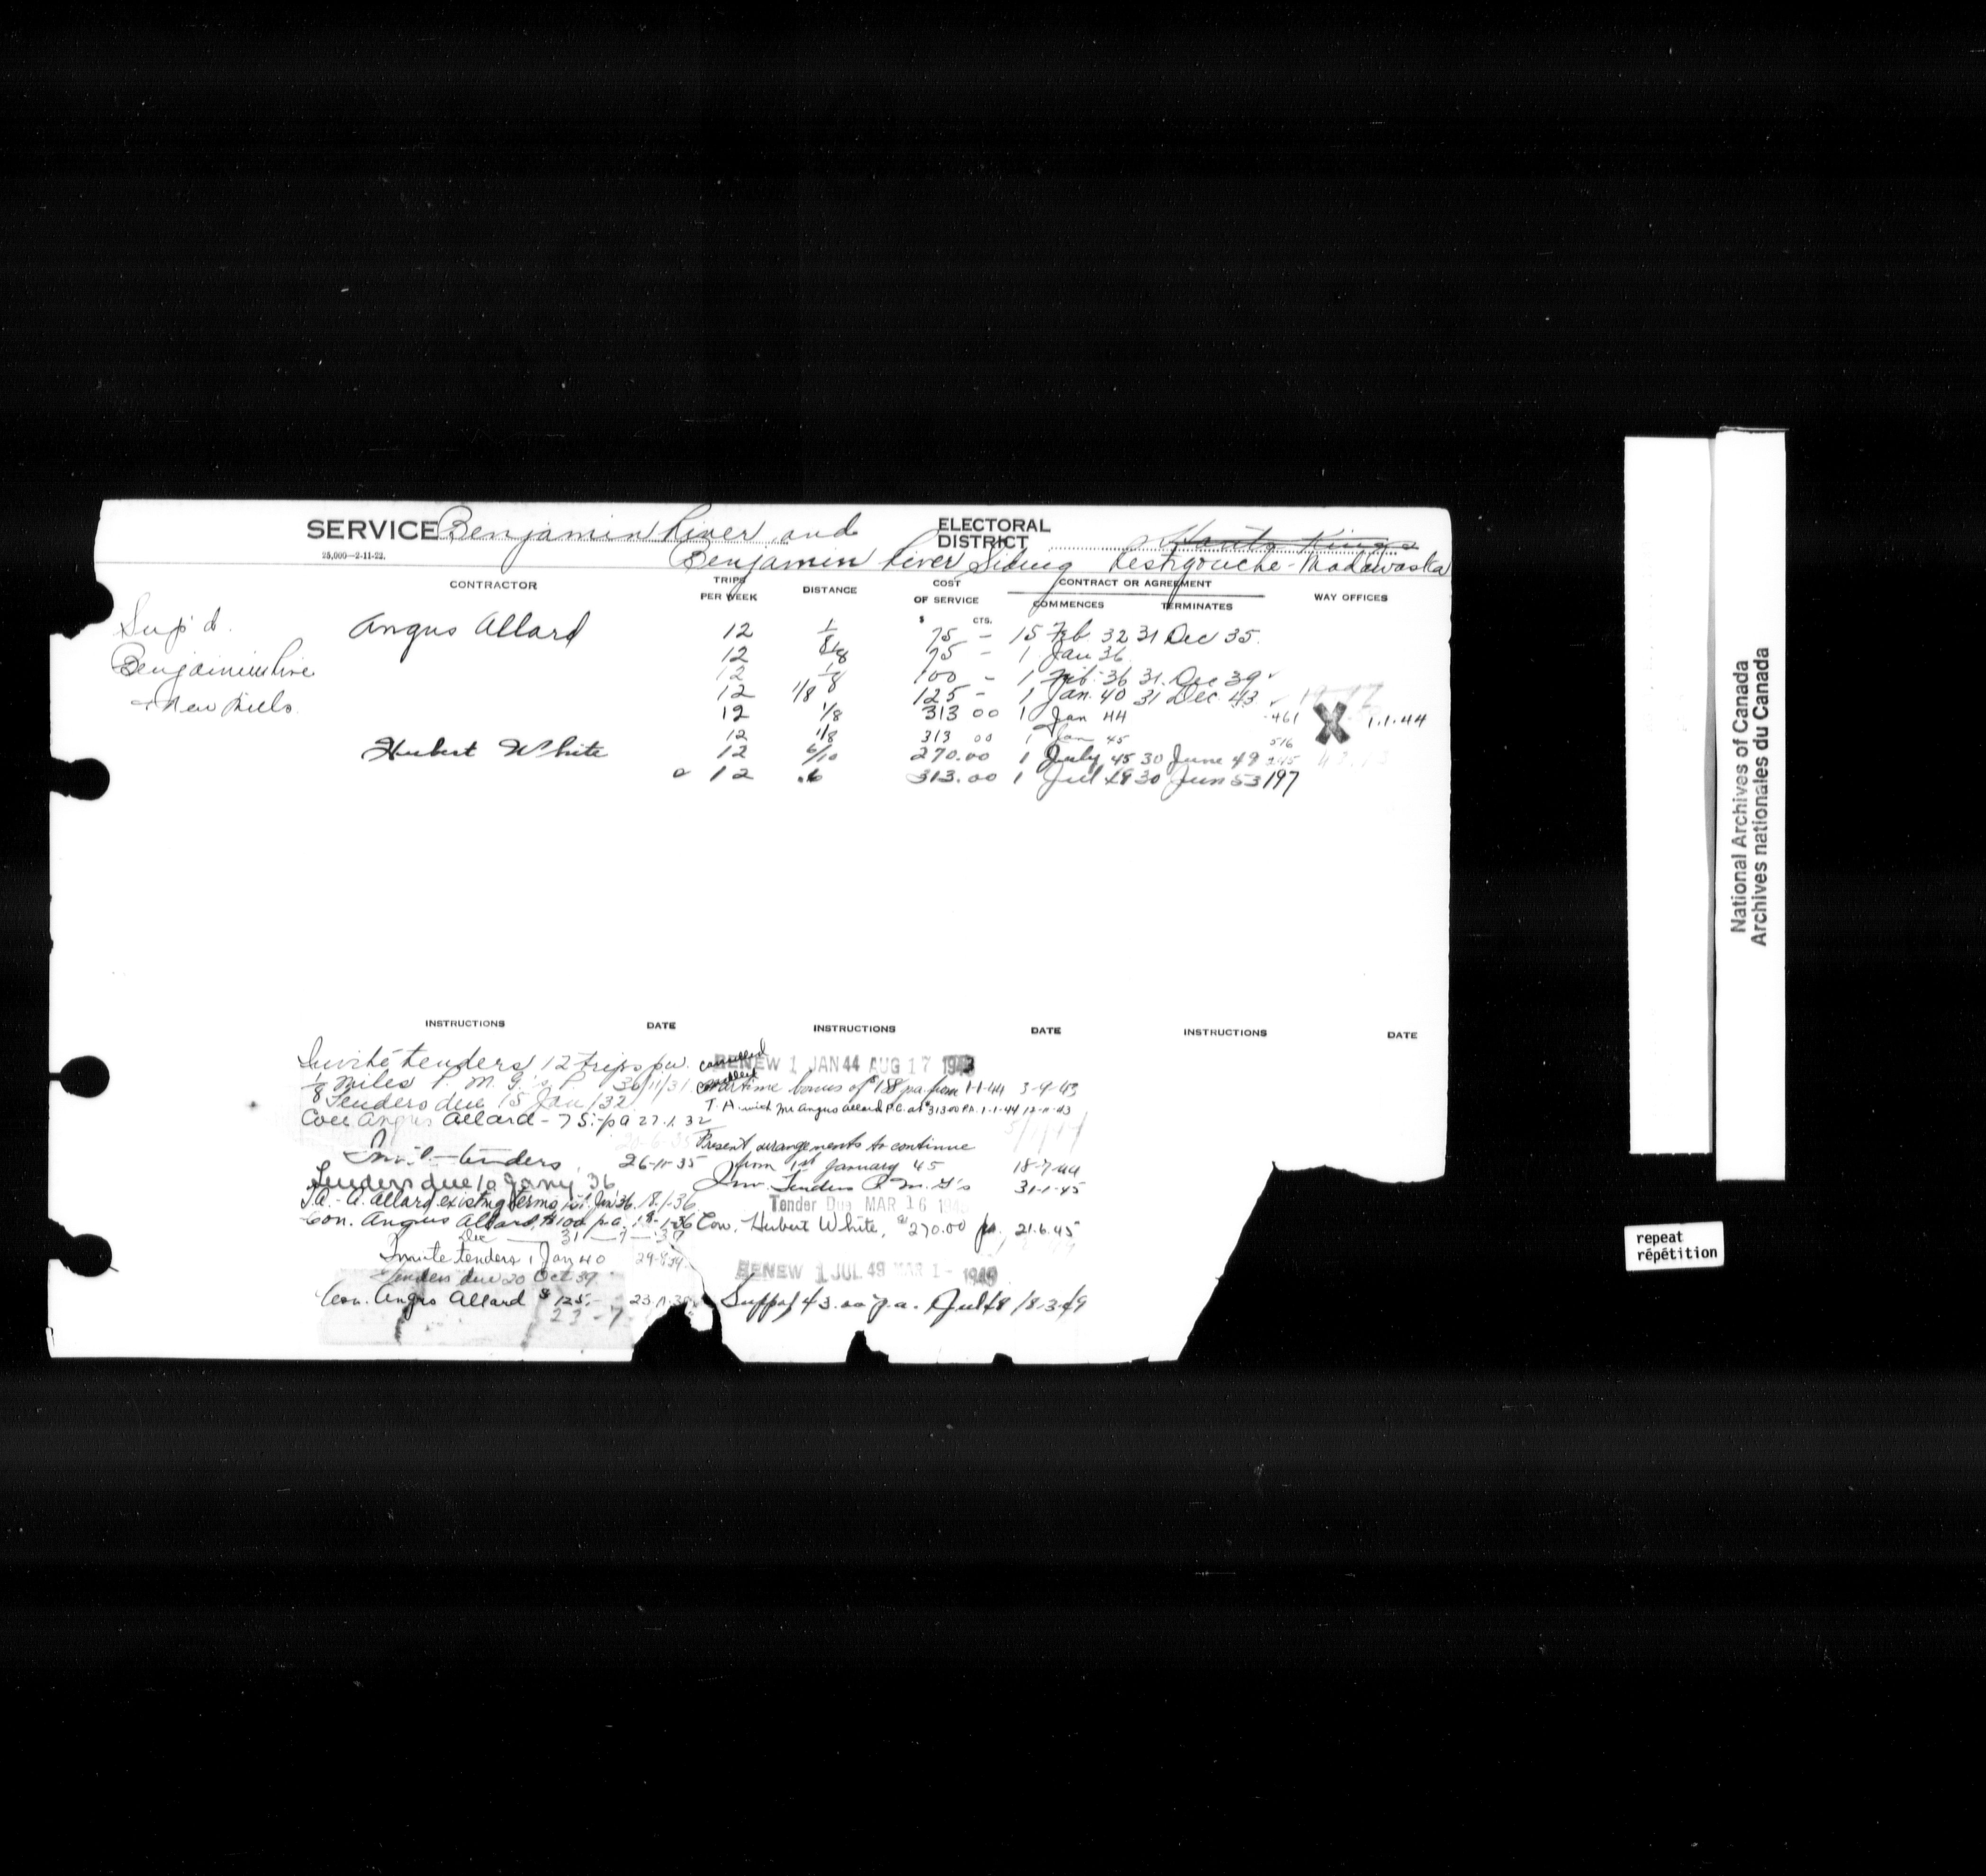 SERVICE Benjamin River and
ELECTORAL DISTRICT Hants Kings
25,000—2-11-22.
Benjamin River Siding Restigouche-Madawaska
CONTRACTOR TRIPS PER WEEK DISTANCE COST OF SERVICE CONTRACT OR AGREEMENT WAY OFFICES
$ CTS. COMMENCES TERMINATES
Sup'd. Angus Allard 12 1/8 75 - 15 Feb. 32 31 Dec 35.
12 1/8 75 - 1 Jan 36
Benjamin Rive 12 1/8 100 - 1 Feb. 36 31. Dec 39
+ New Mills 12 1/8 125 - 1 Jan. 40 31 Dec. 43
12 1/8 313 00 1 Jan 44 461 X 1.1.44
12 1/8 313 00 1 Jan 45 516
Hubert White 12 6/10 270.00 1 July 45 30 June 49
12 .6 313.00 1 Jul 49 30 Jun 53 197
INSTRUCTIONS DATE INSTRUCTIONS DATE INSTRUCTIONS DATE
Invite tenders 12 trips pw.
1/8 miles P. M. G.'s P. 30/11/31
Tenders due 15 Jan/32
Con Angus Allard - 75. pa 27.1.32
Inv. tenders 26-11-35
Tenders due 10 Jany 36
T.A. - A. Allard existing terms 1st Jan 36. 18.1.36
Con. Angus Allard, $100 p.a. 18-1-36
Dec 31-7-39
Invite tenders 1 Jan 40 29-8-39
Tenders due 20 Oct 39
Con. Angus Allard $125. 23.11.39
23-7
cancelled RENEW 1 JAN 44 AUG 17 1943
cancelled Wartime bonus of $188 pa from 1-1-44 3-9-43
T.A. with Mr Angus Allard P.C. at $313.00 P.A. 1-1-44 12-11-43
Present arrangements to continue
from 1st January 45 18-7-44
Inv. Tenders P. M. G's 31-1-45
Tender Due MAR 16 194
Con. Hubert White, $270.00 pa. 21.6.45
RENEW 1 JUL 49 MAR 1- 1949
43.00 p.a. 18-3-49
National Archives of Canada
Archives nationales du Canada
repeat
répétition